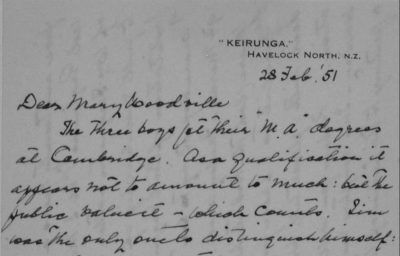 "KEIRUNGA."
HAVELOCK NORTH, N.Z.
28 Feb. '51
Dear Mary Woodville
The three boys got their "M.A." degrees
at Cambridge. As a qualification it
appears not to amount to much: but the
public value it - which counts. Jim
was the only one to distinguish himself: